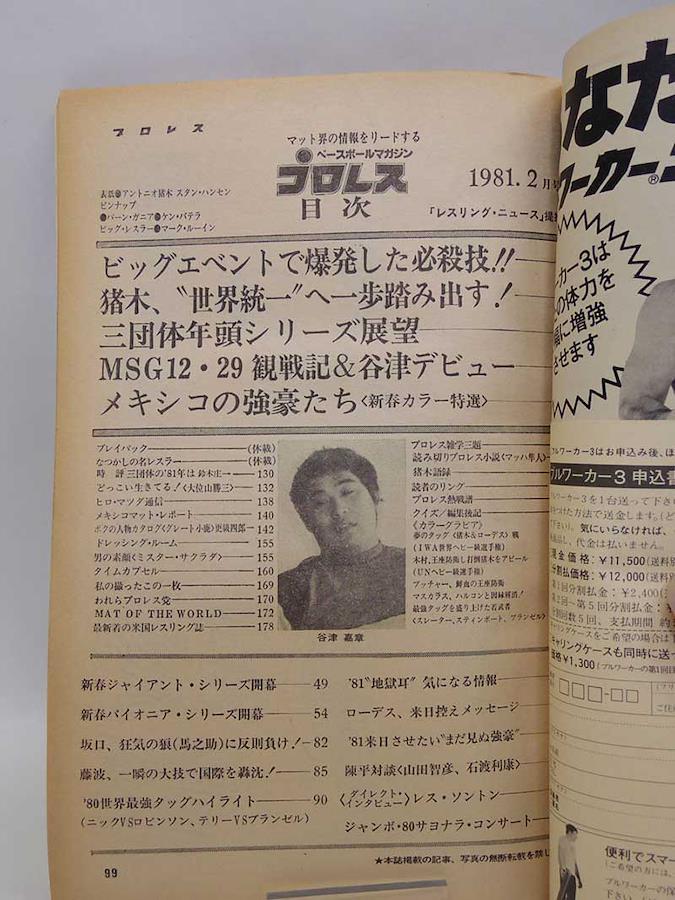 プロレス
マット界の情報をリードする
ベースボールマガジン
プロレス
目次
1981.2月号
「レスリング・ニュース」
表紙●アントニオ猪木 スタン・ハンセン
ピンナップ
●バーン・ガニア●ケン・パテラ
ビッグ・レスラー●マーク・ルーイン
ビッグエベントで爆発した必殺技!!
猪木、〝世界統一〟へ一歩踏み出す!
三団体年頭シリーズ展望
MSG12・29 観戦記&谷津デビュー
メキシコの強豪たち〈新春カラー特選〉
プレイバック (休載)
なつかしの名レスラー (休載)
時 評 三団体の'81年は 鈴木庄一 130
どっこい生きてる!〈大位山勝三〉 132
ヒロ・マツダ通信 138
メキシコマット・レポート 140
ボクの人物カタログ〈グレート小鹿〉更級四郎 142
ドレッシング・ルーム 155
男の素顔〈ミスター・サクラダ〉 155
タイムカプセル 160
私の撮ったこの一枚 169
われらプロレス党 170
MAT OF THE WORLD 172
最新着の米国レスリング誌 178
谷津 嘉章
プロレス雑学三題
読み切りプロレス小説〈マッハ隼人〉
猪木語録
読者のリング
プロレス熱戦譜
クイズ/編集後記
〈カラーグラビア〉
夢のタッグ〈猪木&ローデス〉戦
(IWA世界ヘビー級選手権)
木村、王座防衛し打倒猪木をアピール
(UNヘビー級選手権)
ブッチャー、鮮血の王座防衛
マスカラス、ハルコンと因縁対決!
最強タッグを盛り上げた若武者
〈スレーター、スティンボート、ブランゼル〉
新春ジャイアント・シリーズ開幕 49
新春パイオニア・シリーズ開幕 54
坂口、狂気の狼(馬之助)に反則負け! 82
藤波、一瞬の大技で国際を轟沈! 85
'80世界最強タッグハイライト 90
(ニックVSロビンソン、テリーVSブランゼル)
'81〝地獄耳〟気になる情報
ローデス、来日控えメッセージ
'81来日させたい〝まだ見ぬ強豪〟
陳平対談〈山田智彦、石渡利康〉
〈ダイレクト・インタビュー〉レス・ソントン
ジャンボ・80サヨナラ・コンサート
★本誌掲載の記事、写真の無断転載を禁じ
99
なた
ワーカー®
ーカー3は
の体力を
幅に増強
させます
ブルワーカー3はお申込み後、ほ
ブルワーカー3 申込書
ブルワーカー3を1台送って下さ
気にいらなければ、
返品し、代金は払いません。
現金価格:¥11,500(送料別
分割払価格:¥12,000(送料
第1回分割払金:¥2,400
第2回~第5回分割払金:
分割回数5回、支払期間 約
キャリングケースをご希望の場合は
キャリングケースも同時に送っ
価格¥1,300(ブルワーカーの第1回
便利でスマー
(ご希望の方には、
ブルワーカーの保